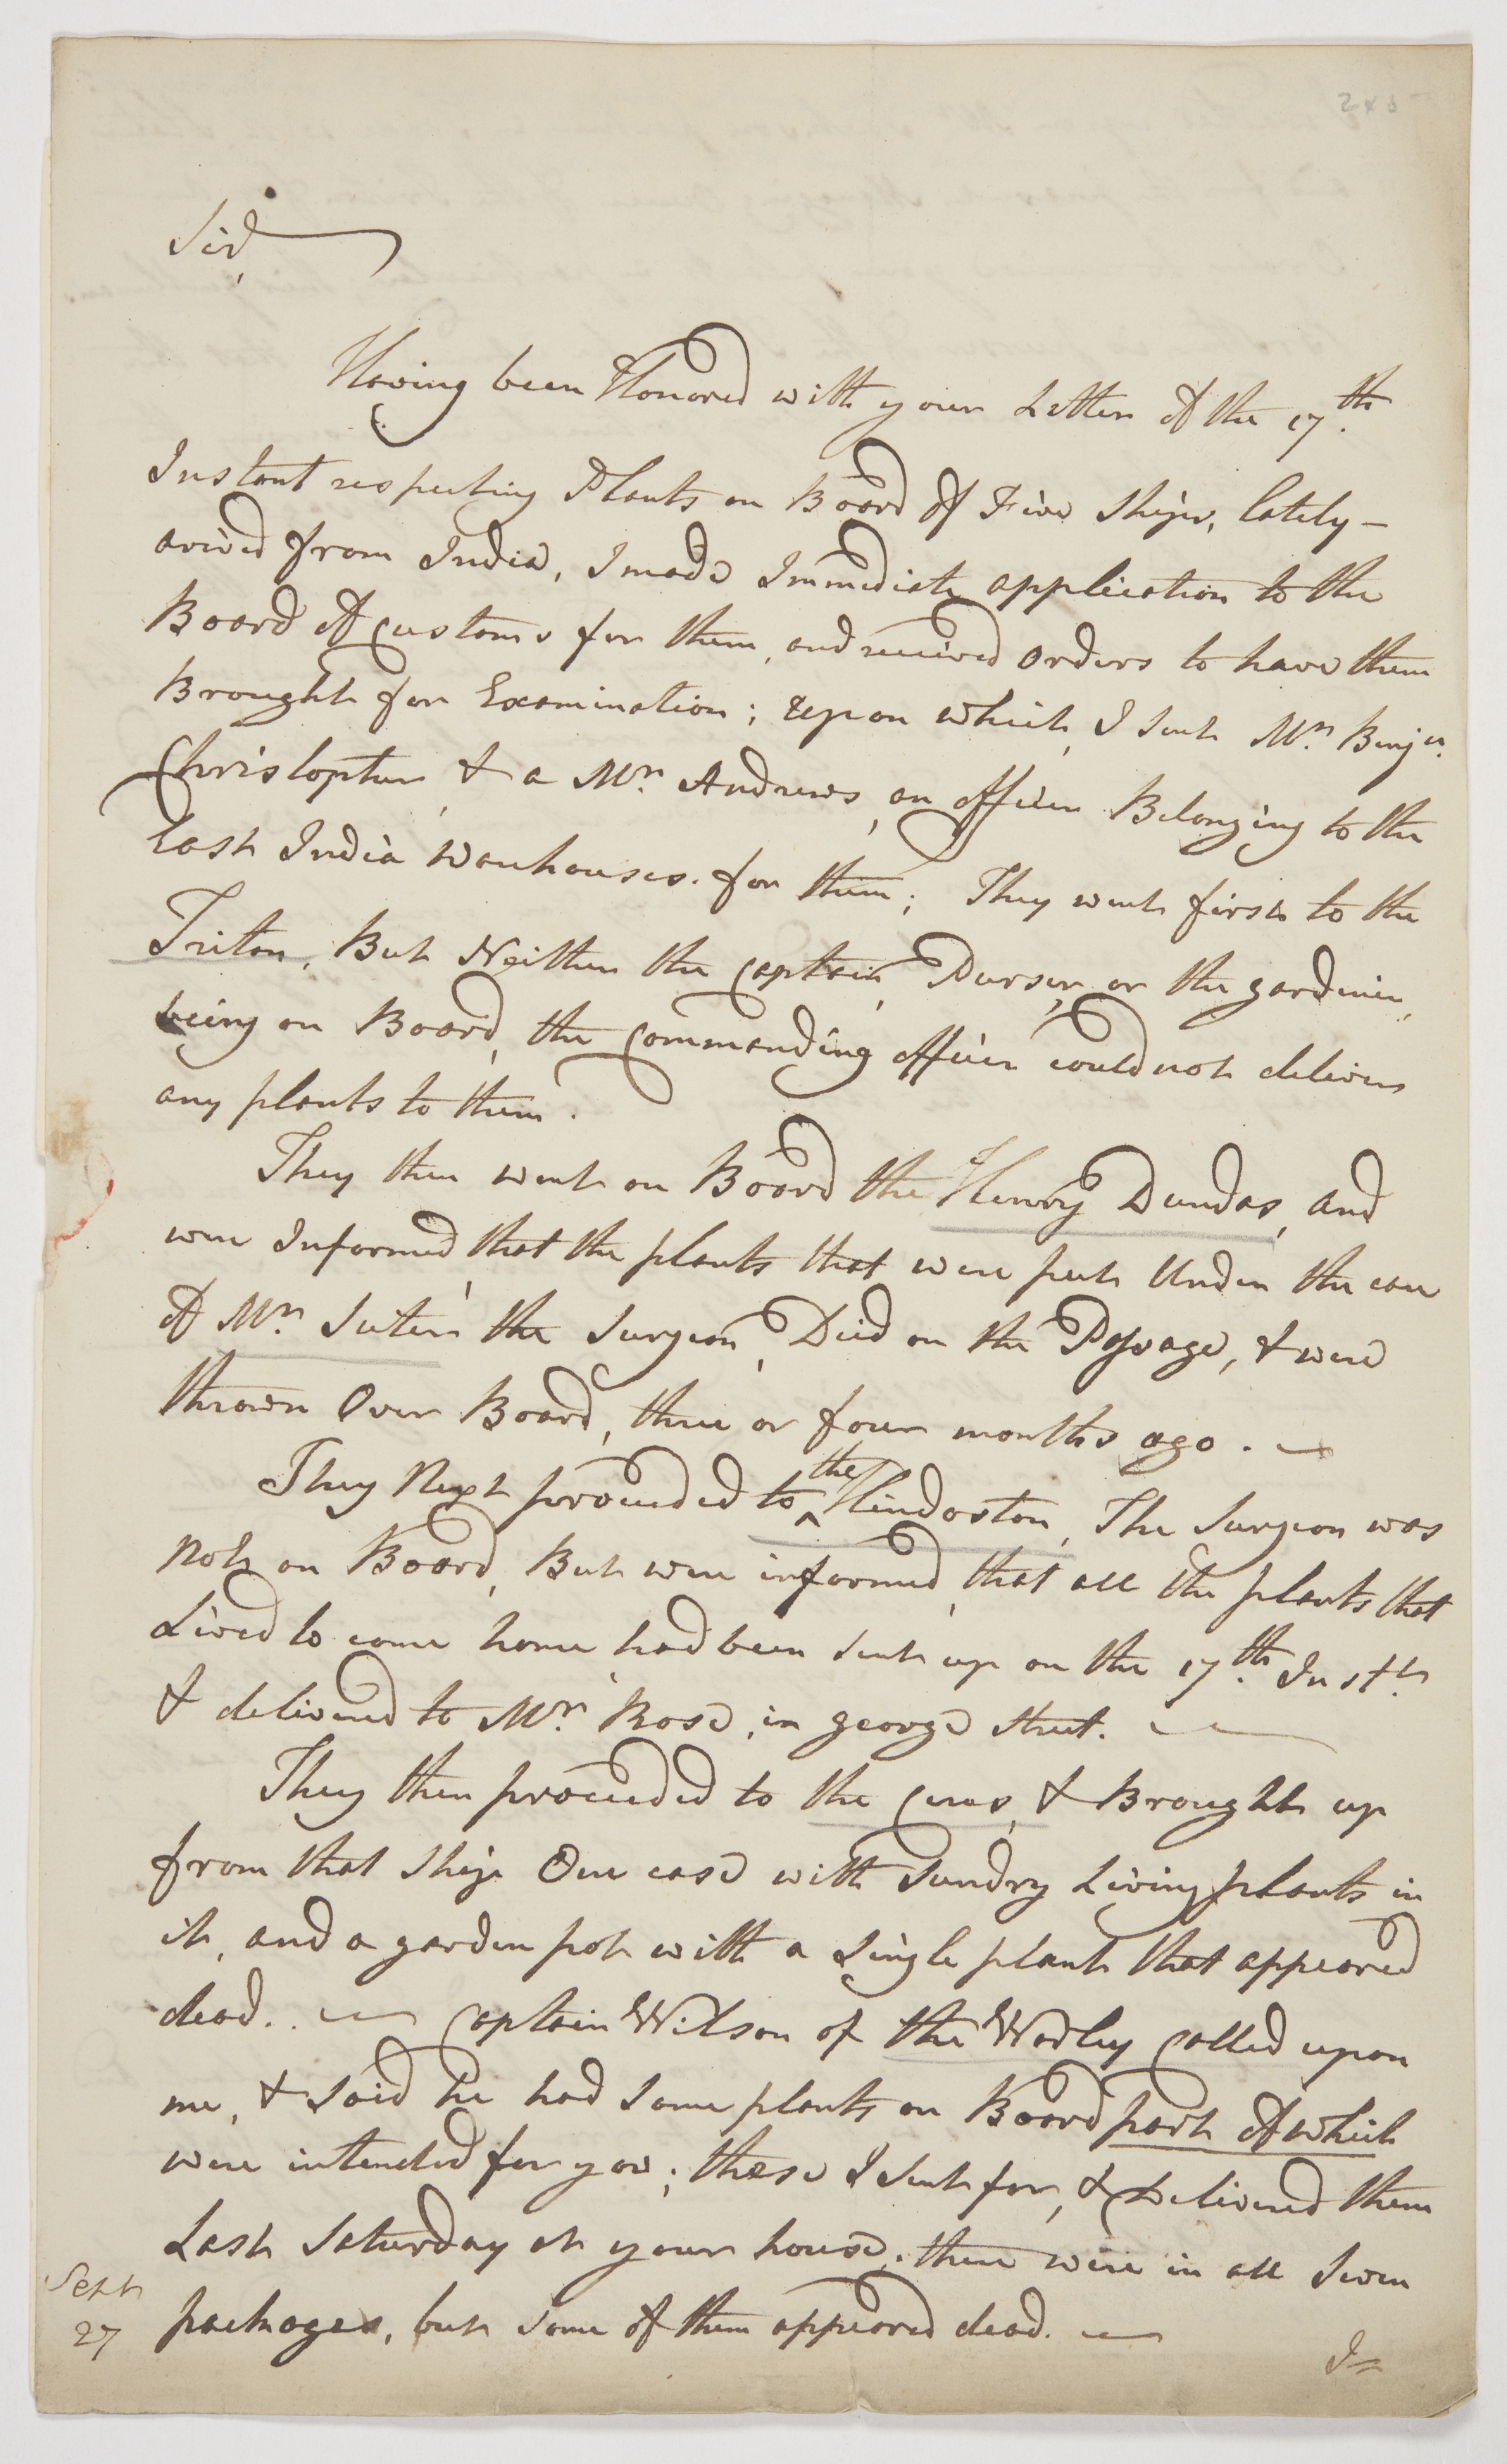 Sir,
Having been Honored with your Letter of the 17th.
Instant respecting Plants on Board of Five Ships, lately –
arived from India, I made Immediate application to the
Board of Customs for them, and received orders to have them
Brought for Examination; Upon which, I sent Mr. Benjn.
Christopher, & a Mr. Andrews, an officer Belonging to the
East India Warehouses. for them; They went first to the
Triton, But Neither the Captain, Purser, or the gardiner,
being on Board, the Commanding officer could not deliver
any plants to them.
They then went on Board the Henry Dundas, and
were Informed, that the plants that were put Under the care
of Mr. Suter the Surgeon, Died on the Passage, & were
thrown Over Board, three or four months ago. –
They Next proceeded to ^the Hindostan, The Surgeon was
not on Board, But were informed, that all the plants that
Lived to come home had been sent up on the 17th. Instt.
& delivered to Mr. Rose, in george street. –
They then proceeded to the Ceres, & Brought up
from that Ship One case with Sundry Living plants in
it, and a garden pot with a Single plant that appeared
dead. . — Captain Wilson of the Warley Called upon
me, & Said he had Some plants on Board part of which
were intended for you; these I sent for, & Delivered them
Last Saturday at your house; there were in all Seven
packages, but some of them appeared dead. —
Sept
27
I=